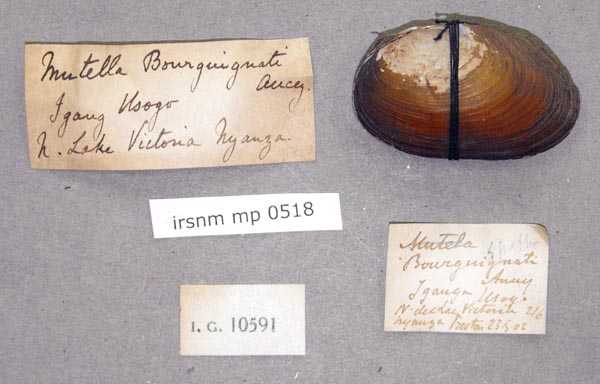 Mutella Bourguignati
Ancey.
Igang Usogo
N. Lake Victoria Nyanza.
irsnm mp 0518
Mutela Spatha
Bourguignati
Ancey
Iganga Usogo
N. de Lac Victoria 2/6
Nyanza 23.5.02
I. G. 10591